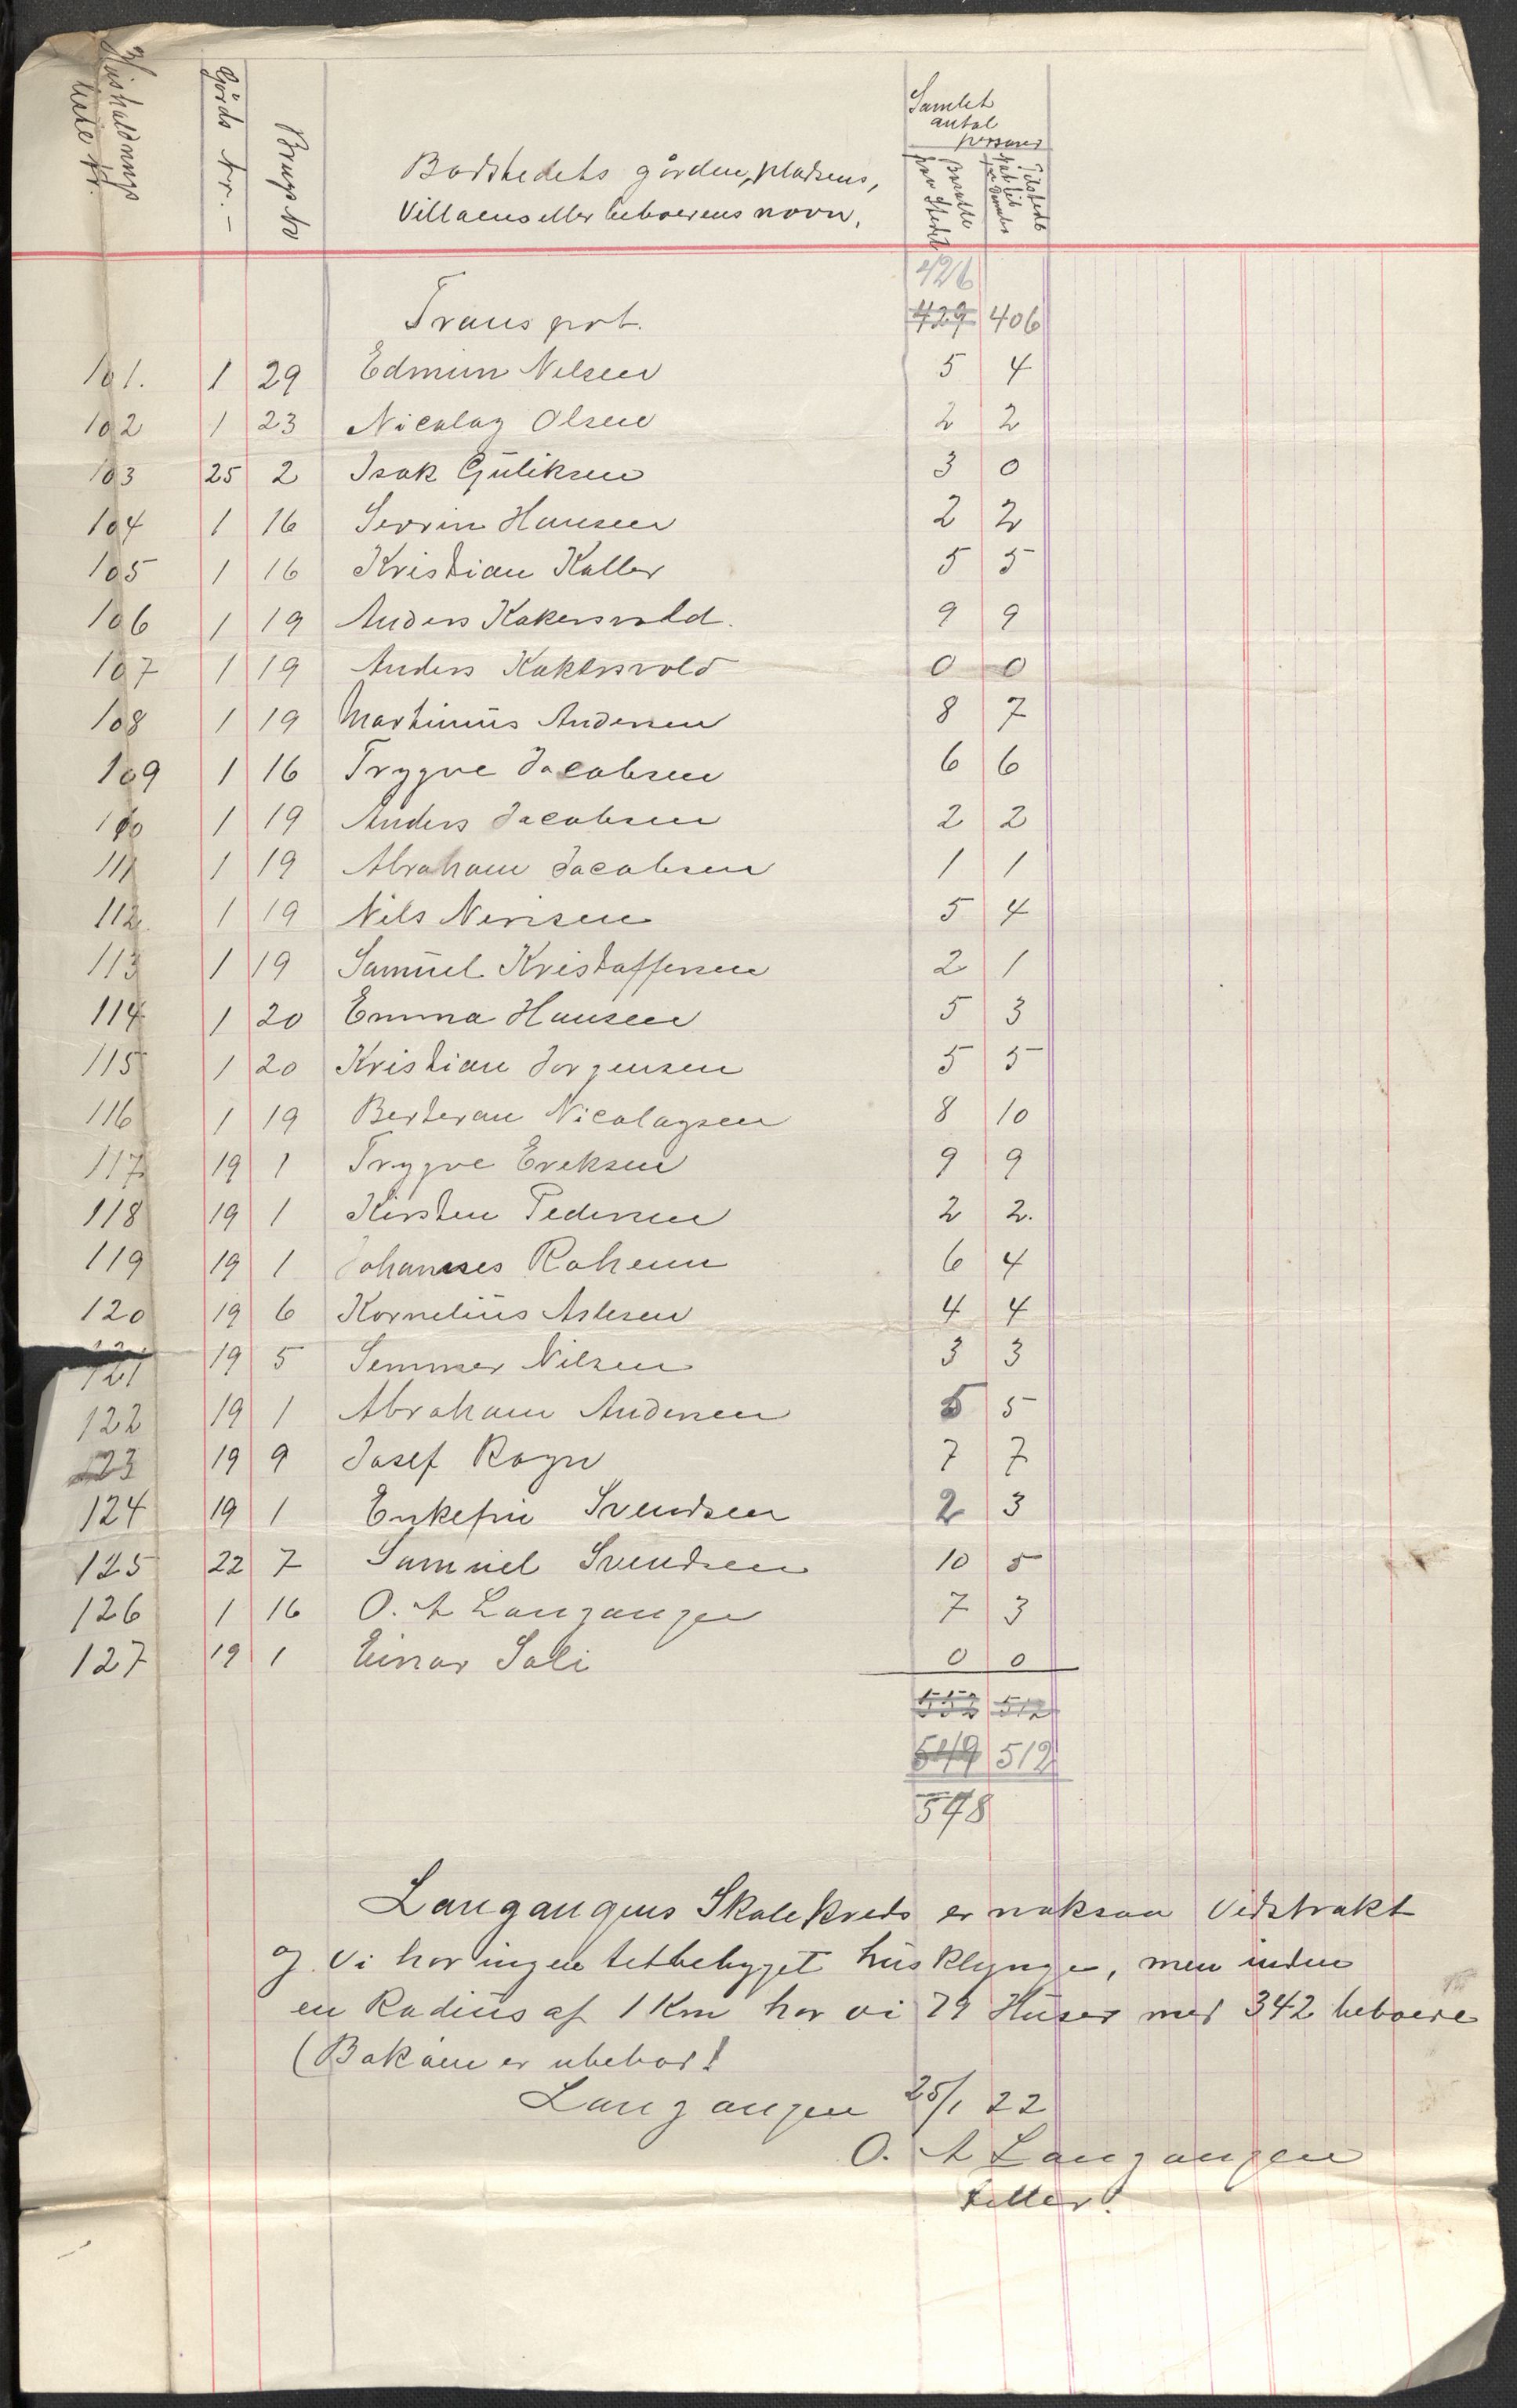 Husholdnings
liste Nr.
Gårds Nr. –
Brugs Nr
Bostedets gårdens, pladsens,
Villaens eller beboerens navn.
Samlet
antal
personer
Bosatte
paa Stedet
Tilstede
426
Transport. 429 406
101. 1 29 Edmun Nelsen 5 4
102 1 23 Nicolay Olsen 2 2
103 25 2 Isak Guliksen 3 0
104 1 16 Serrin Hansen 2 2
105 1 16 Kristian Kaller 5 5
106 1 19 Anders Kokersvold. 9 9
107 1 19 Anders Kokersvold 0 0
108 1 19 Martinius Andersen 8 7
109 1 16 Trygve Jacobsen 6 6
110 1 19 Anders Jacobsen 2 2
111 1 19 Abraham Jacobsen 1 1
112. 1 19 Nils Nerisen 5 4
113 1 19 Samuel Kristoffersen 2 1
114 1 20 Emma Hansen 5 3
115 1 20 Kristian Jorgensen 5 5
116 1 19 Berteran Nicolaysen 8 10
117 19 1 Trygve Ereksen 9 9
118 19 1 Kirsten Pedersen 2 2.
119 19 1 Johannes Rohenn 6 4
120 19 6 Kornelius Aslesen 4 4
121 19 5 Semmer Nilsen 3 3
122 19 1 Abraham Andersen 5 5
123 19 9 Josef Rogn 7 7
124 19 1 Enkefru Svendsen 2 3
125 22 7 Samuel Svendsen 10 5
126 1 16 O. A Langangen 7 3
127 19 1 Einar Sali 0 0
552 512
549 512
548
Langangens Skolekreds er noksaa Vidstrakt
og Vi har ingen tetbebygget husklynge, men inden
en Radius af 1 Km har vi 79 Huser med 342 beboere
(Bakåen er ubebod!
Langangen 25/1 22
O. A Langangen
teller.